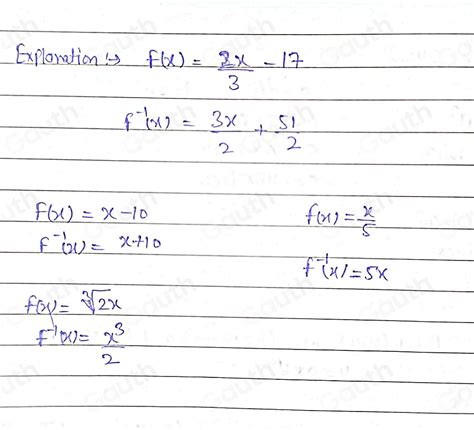 Explanation :→ f(x) = 2x/3 - 17
f⁻¹(x) = 3x/2 + 51/2
f(x) = x-10
f(x) = x/5
f⁻¹(x) = x+10
f⁻¹(x) = 5x
f(x) = ∛2x
f⁻¹(x) = x³/2